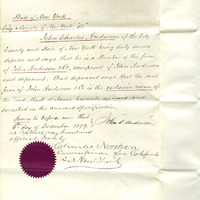 State of New York
City & County of New York, ss
John Charles Anderson of the City
County and State of New York being duly sworn
deposes and says that he is a Member of the firm
of John Anderson & Co, composed of John Anderson
and deponent. And deponent says that the said
firm of John Anderson & Co is the exclusive owner of
the Trade Mark
in the annexed specification.
Sworn to before me this
8th day of December 1877
as witness my hand and
official seal
John C. Anderson
Charles
Commissioner for California
in New York